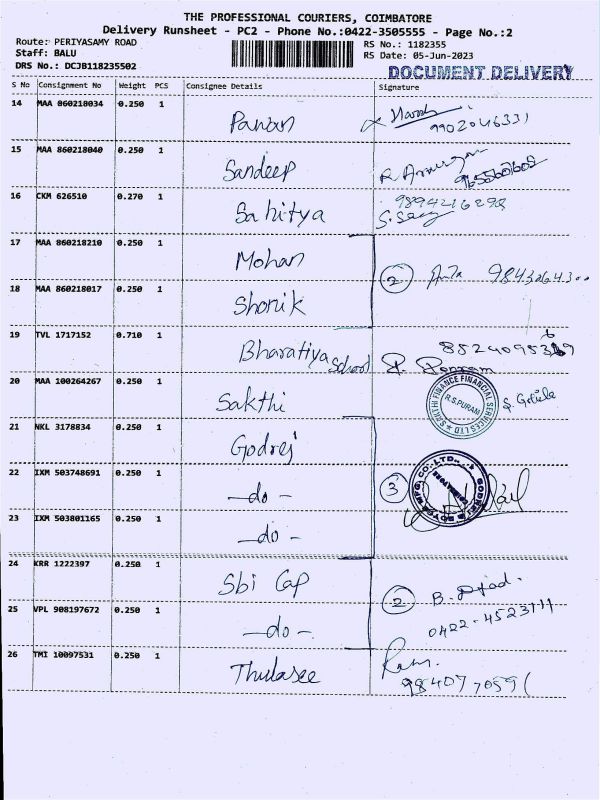 THE PROFESSIONAL COURIERS, COIMBATORE
Delivery Runsheet - PC2 - Phone No.:0422-3505555 - Page No.:2
Route: PERIYASAMY ROAD RS No.: 1182355
Staff: BALU RS Date: 05-Jun-2023
DRS No.: DCJB118235502
DOCUMENT DELIVERY
S No Consignment No Weight PCS Consignee Details Signature
14 MAA 860218034 0.250 1 Pawan
9902046331
15 MAA 860218040 0.250 1 Sandeep
16 CKM 626510 0.270 1 Sahitya 9894216298
17 MAA 860218210 0.250 1 Mohan
18 MAA 860218017 0.250 1 Shonik
2
19 TVL 1717152 0.710 1 Bharatiya School
20 MAA 100264267 0.250 1 Sakthi
SAKTHI FINANCE FINANCIAL SERVICES LTD
R.S.PURAM
21 NKL 3178834 0.250 1 Godrej
22 IXM 503748691 0.250 1 -do-
3
GODREJ & BOYCE MFG. CO. LTD.
23 IXM 503801165 0.250 1 -do-
24 KRR 1222397 0.250 1 Sbi Cap
2
25 VPL 908197672 0.250 1 -do-
0422-4523111
26 TMI 10097531 0.250 1 Thulasee Ram.